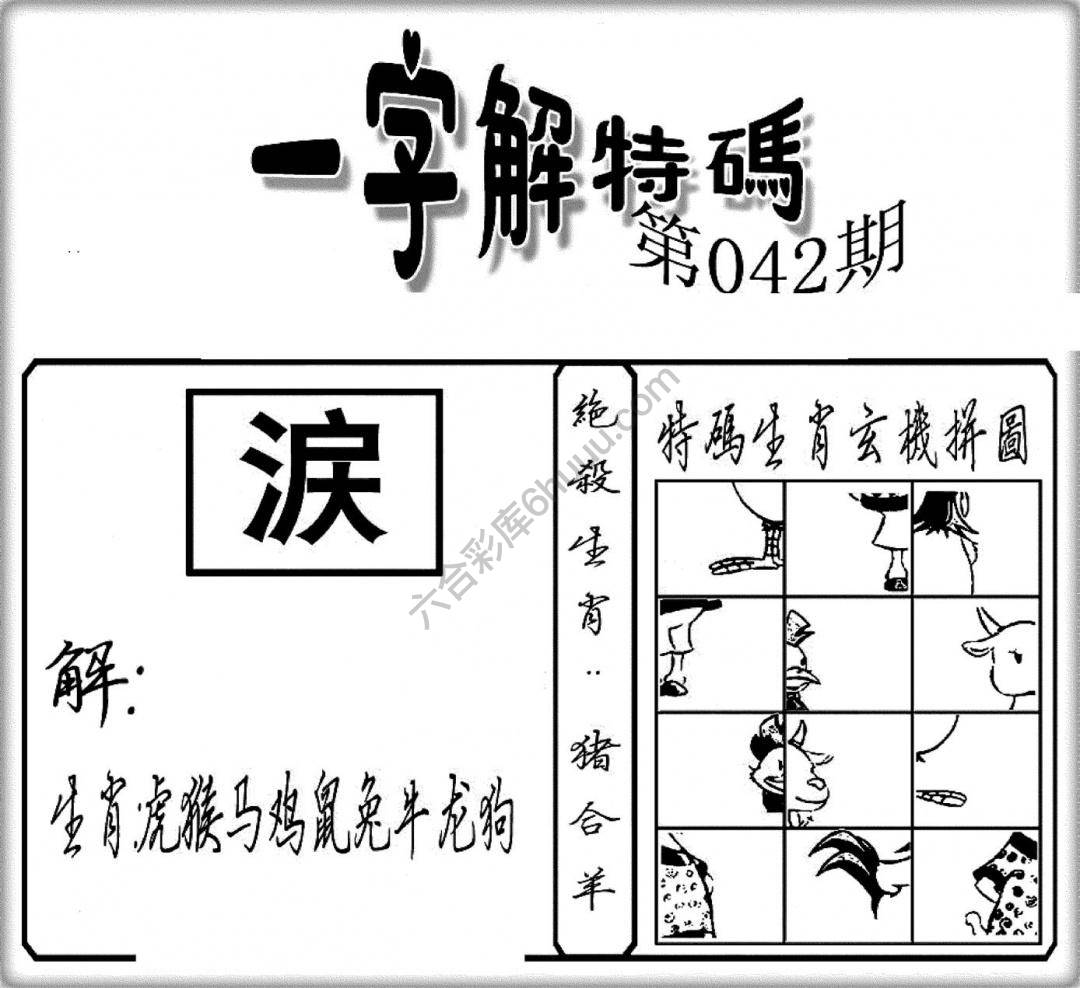 一字解特碼
第042期
淚
解：
生肖虎猴马鸡鼠兔牛龙狗
絶殺生肖：猪合羊
特碼生肖玄機拼圖
六合彩库6huuu.com